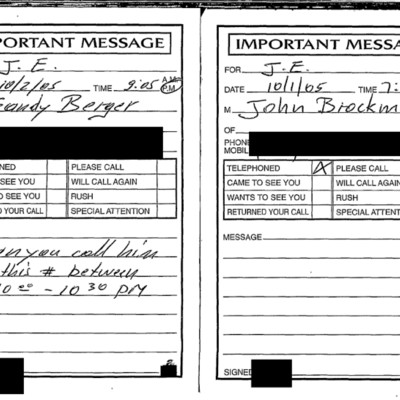 PORTANT MESSAGE
J.E.
10/2/05 TIME 9:05 A.M. P.M.
Sandy Berger
NED PLEASE CALL
SEE YOU WILL CALL AGAIN
O SEE YOU RUSH
D YOUR CALL SPECIAL ATTENTION
you call him
this # between
10 00 - 10 30 PM
IMPORTANT MESSA
FOR J.E.
DATE 10/1/05 TIME 7:
M John Brockm
OF
PHONE
MOBIL
TELEPHONED X PLEASE CALL
CAME TO SEE YOU WILL CALL AGAIN
WANTS TO SEE YOU RUSH
RETURNED YOUR CALL SPECIAL ATTEN
MESSAGE
SIGNED